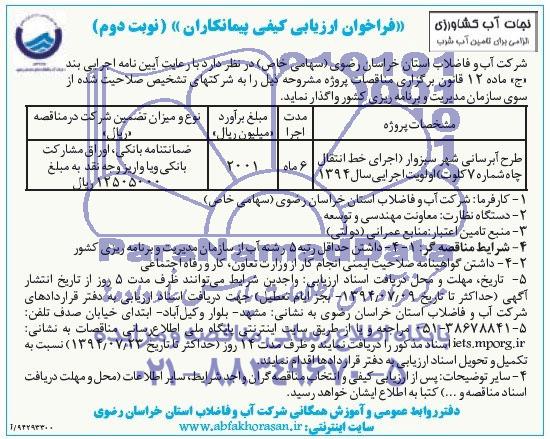 نجات آب کشاورزی
الزامی برای تامین آب شرب
«فراخوان ارزیابی کیفی پیمانکاران» (نوبت دوم)
شرکت آب و فاضلاب استان خراسان رضوی (سهامی خاص) در نظر دارد با رعایت آیین نامه اجرایی بند
«ج» ماده ۱۲ قانون برگزاری مناقصات پروژه مشروحه ذیل را به شرکتهای تشخیص صلاحیت شده از
سوی سازمان مدیریت و برنامه ریزی کشور واگذار نماید.
مشخصات پروژه
مدت اجرا
مبلغ برآورد «میلیون ریال»
نوع و میزان تضمین شرکت در مناقصه «ریال»
طرح آبرسانی شهر سبزوار (اجرای خط انتقال چاه شماره ۷ کلوت) اولویت اجرایی سال ۱۳۹۴
۶ ماه
۲۰۰۱
ضمانتنامه بانکی، اوراق مشارکت بانکی و یا واریز وجه نقد به مبلغ ۱۲۵۰۵۰۰۰۰
۱- کارفرما: شرکت آب و فاضلاب استان خراسان رضوی (سهامی خاص)
۲- دستگاه نظارت: معاونت مهندسی و توسعه
۳- منبع تامین اعتبار: منابع عمرانی (دولتی)
۴- شرایط مناقصه گر: ۱-۴- داشتن حداقل رتبه ۵ رشته آب از سازمان مدیریت و برنامه ریزی کشور
۲-۴- داشتن گواهینامه صلاحیت ایمنی انجام کار از وزارت تعاون، کار و رفاه اجتماعی
۵- تاریخ، مهلت و محل دریافت اسناد ارزیابی: واجدین شرایط می‌توانند ظرف مدت ۵ روز از تاریخ انتشار
آگهی (حداکثر تا تاریخ ۱۳۹۴/۰۷/۰۹- بجز ایام تعطیل) جهت دریافت اسناد ارزیابی به دفتر قراردادهای
شرکت آب و فاضلاب استان خراسان رضوی به نشانی: مشهد- بلوار وکیل‌آباد- ابتدای خیابان صدف تلفن:
۵-۳۸۶۷۸۸۴۱-۰۵۱ مراجعه و یا از طریق سایت اینترنتی پایگاه ملی اطلاع‌رسانی مناقصات به نشانی:
iets.mporg.ir اسناد مذکور را دریافت نمایند و ظرف مدت ۱۴ روز (حداکثر تا تاریخ ۱۳۹۴/۰۷/۲۳) نسبت به
تکمیل و تحویل اسناد ارزیابی به دفتر قراردادها اقدام نمایند.
۶- سایر توضیحات: پس از ارزیابی کیفی و انتخاب مناقصه گران واجد شرایط، سایر اطلاعات (محل و مهلت دریافت
اسناد مناقصه و...) کتبا به اطلاع ایشان خواهد رسید.
دفتر روابط عمومی و آموزش همگانی شرکت آب و فاضلاب استان خراسان رضوی
سایت اینترنتی: www.abfakhorasan.ir
۹۴۲۹۳۳۰۰/آ
۰۲۱-۸۸۳۴۹۶۷۰-۵